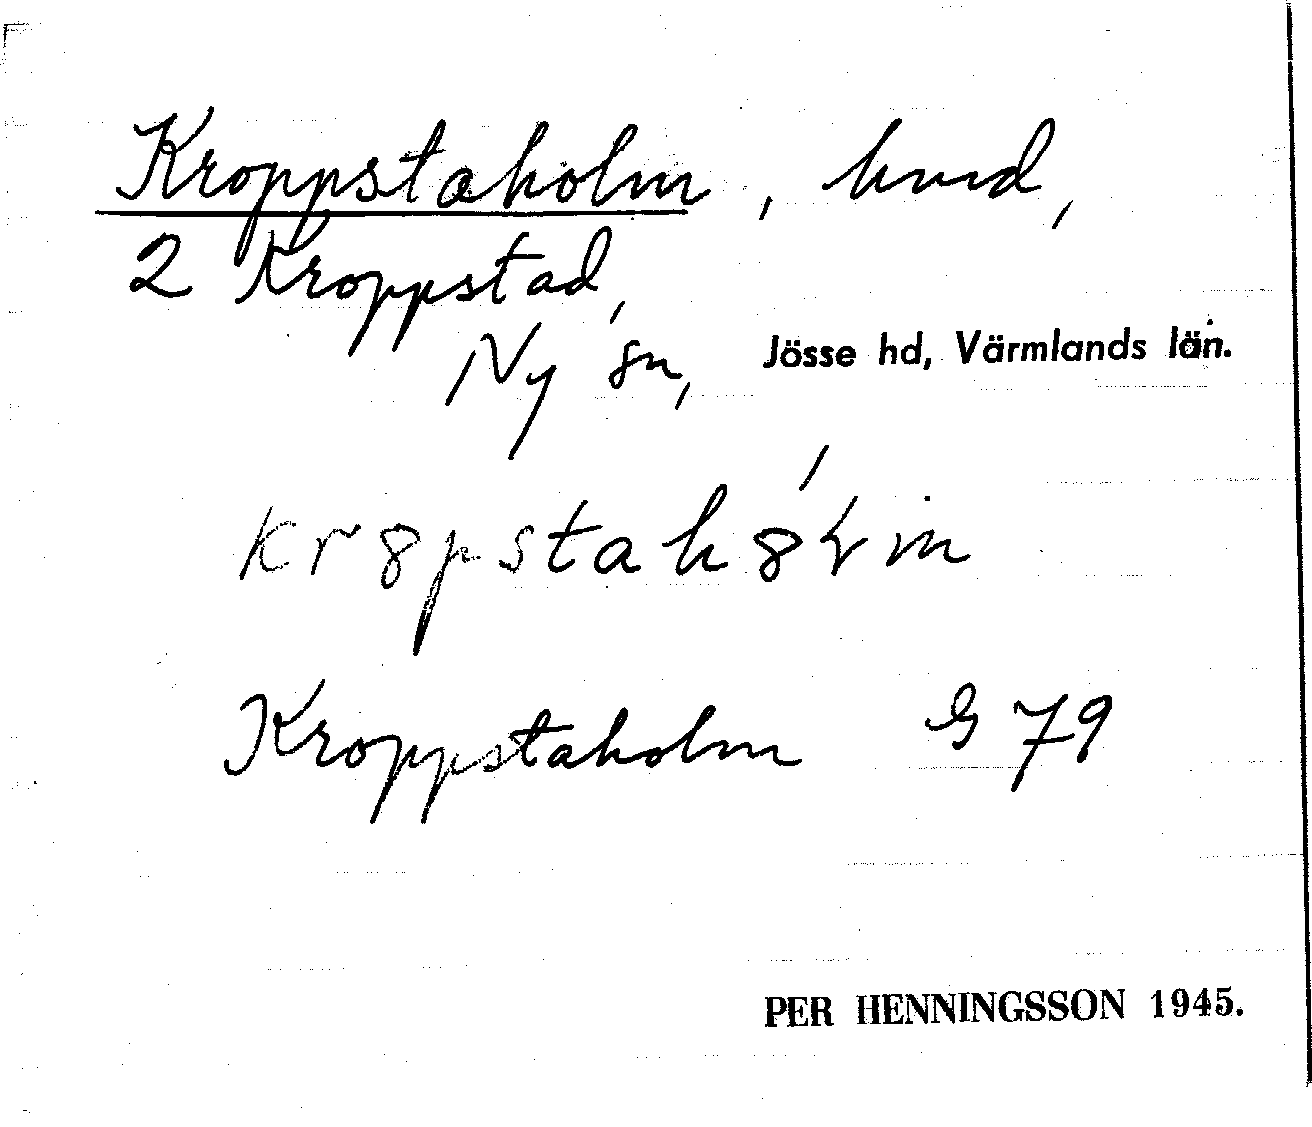 Kroppstaholm, hmd,
2 Kroppstad,
Ny sn, Jösse hd, Värmlands län.
Kroppstaholm G 79
PER HENNINGSSON 1945.